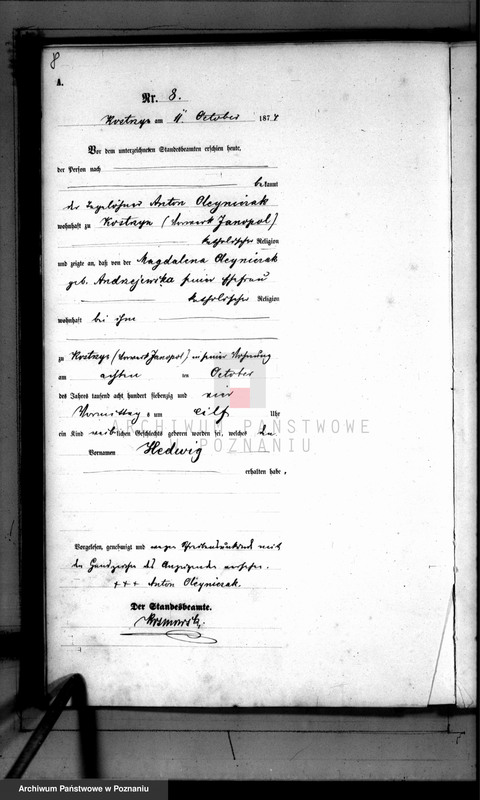 8
A.
Nr. 8.
Kostrzyn am 11ten October 1874
Vor dem unterzeichneten Standesbeamten erschien heute,
der Person nach
bekannt
der Tagelöhner Anton Oleyniczak
wohnhaft zu Kostrzyn (Vorwerk Janopol)
katholischer Religion
und zeigte an, daß von der Magdalena Oleyniczak
geb. Andrzejewska seiner Ehefrau
katholischer Religion
wohnhaft bei ihm
zu Kostrzyn (Vorwerk Janopol) in seiner Wohnung
am achten ten October
des Jahrs tausend acht hundert siebenzig und vier
Vormittags um eilf Uhr
ein Kind weiblichen Geschlechts geboren worden sei, welches den
Vornamen Hedwig
erhalten habe.
Vorgelesen, genehmigt und wegen Schreibensunkunde mit
den Handzeichen des Anzeigenden versehen.
+++ Anton Oleyniczak.
Der Standesbeamte.
ARCHIWUM PAŃSTWOWE
W POZNANIU
Archiwum Państwowe w Poznaniu